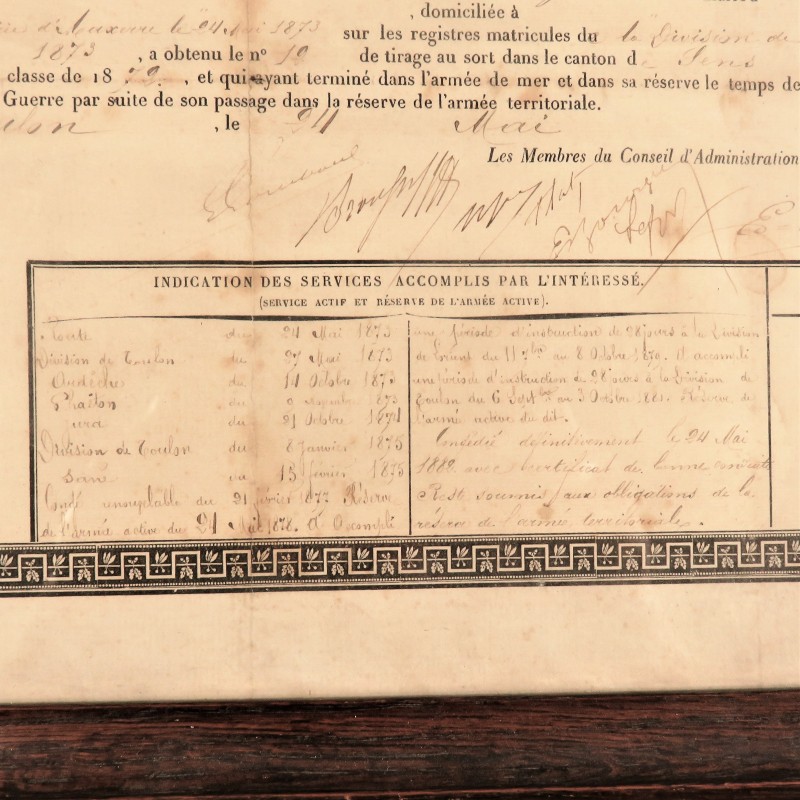 , domiciliée à
24 Mai 1873
sur les registres matricules du la Division de
1873, a obtenu le nº 19 de tirage au sort dans le canton de Sens
classe de 1872, et qui ayant terminé dans l'armée de mer et dans sa réserve le temps de
Guerre par suite de son passage dans la réserve de l'armée territoriale.
, le 24 Mai
Les Membres du Conseil d'Administration
INDICATION DES SERVICES ACCOMPLIS PAR L'INTÉRESSÉ.
(SERVICE ACTIF ET RÉSERVE DE L'ARMÉE ACTIVE).
du 24 Mai 1873
Division de Toulon du 27 Mai 1873
du 14 Octobre 1873
du 1873
Jura du 21 Octobre 1874
Division de Toulon du 8 Janvier 1875
au 13 février 1875
Congé renouvelable du 21 février 1877. Réserve
de l'armée active du 24 Mai 1878. A accompli
une période d'instruction de 28 jours à la Division
de du 11 7bre au 8 Octobre. A accompli
une période d'instruction de 28 jours à la Division de
Toulon du 6 Sept bre au 3 Octobre 1881. Réserve de
l'armée active du dit.
Congédié définitivement le 24 Mai
1882 avec certificat de bonne conduite
Reste soumis aux obligations de la
réserve de l'armée territoriale.